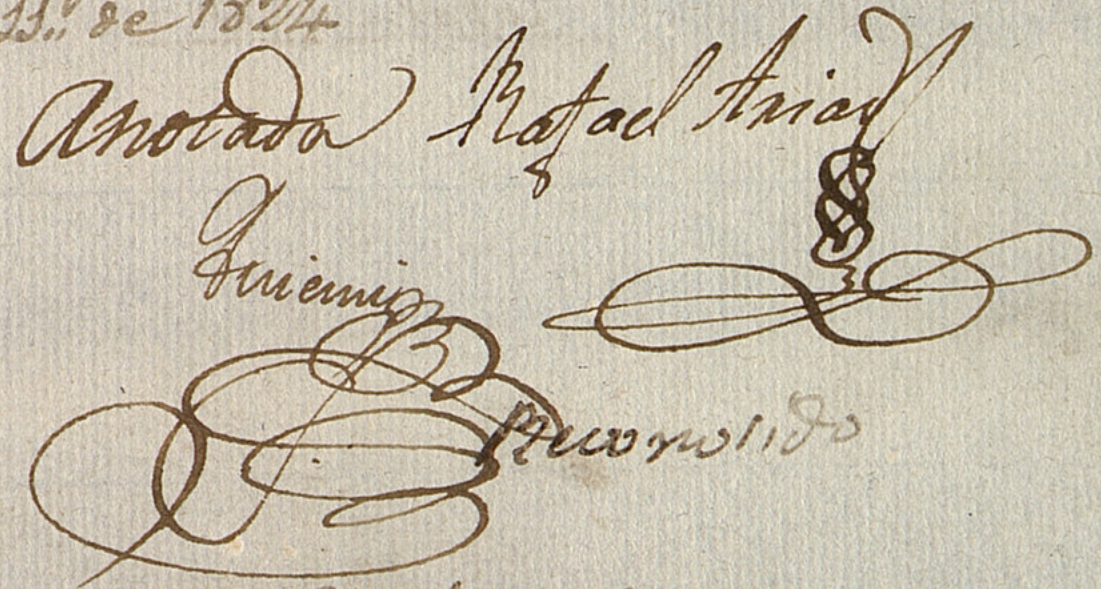 de 1824
Anotada Rafael Arias
Reconosido